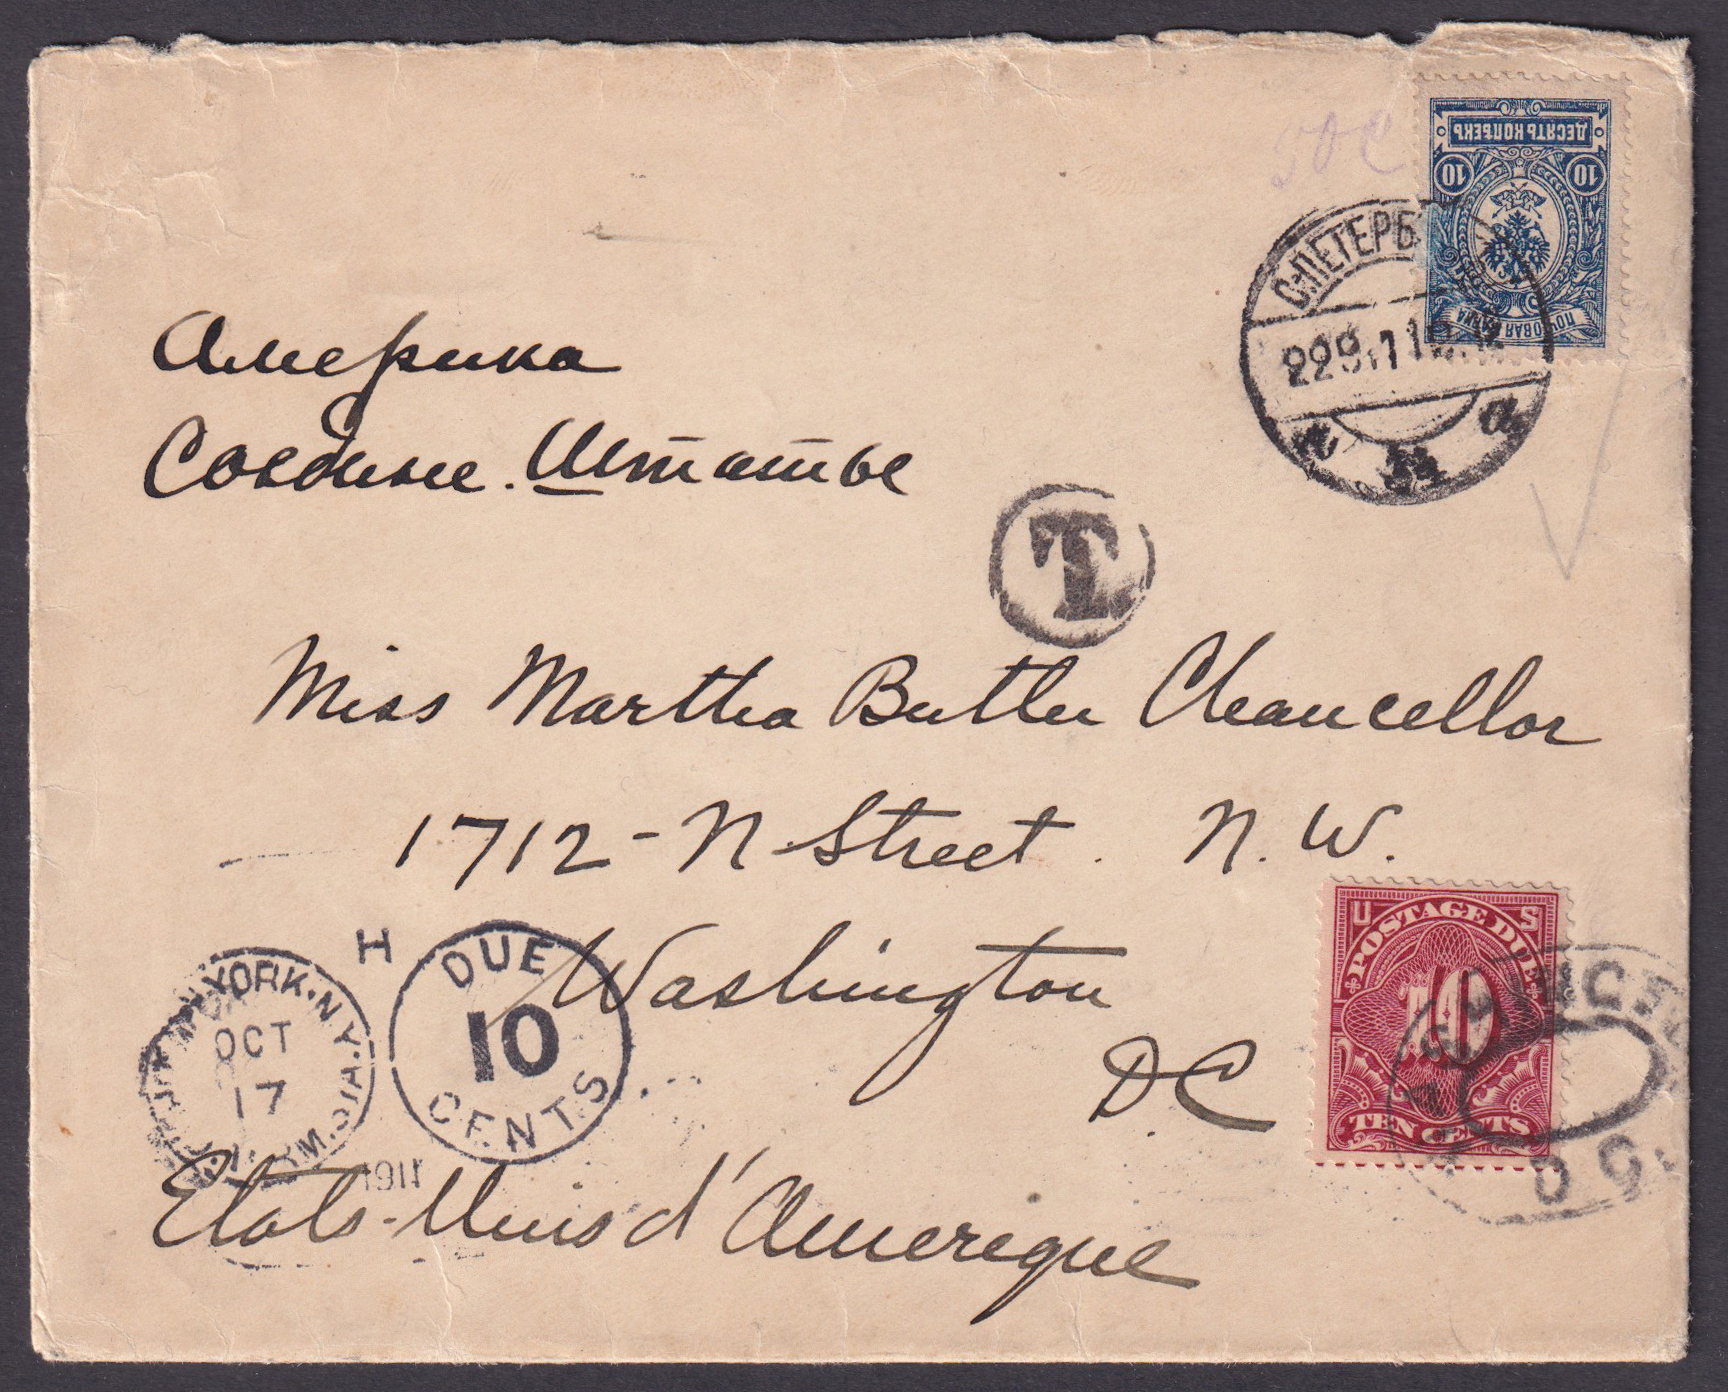 50c
ДЕСЯТЬ КОПѢЕКЪ
10 10
ПОЧТОВАЯ МАРКА
С.ПЕТЕРБ
229.11
Америка
Соединые. Штаты
T
Miss Martha Butler Chancellor
1712 - N Street. N. W.
Washington
D.C
Etats-Unis d'Amerique
H
DUE
10
CENTS
YORK. N.Y.
OCT
17
1911
U S
POSTAGE DUE
10
TEN CENTS
WASHINGTON
D C